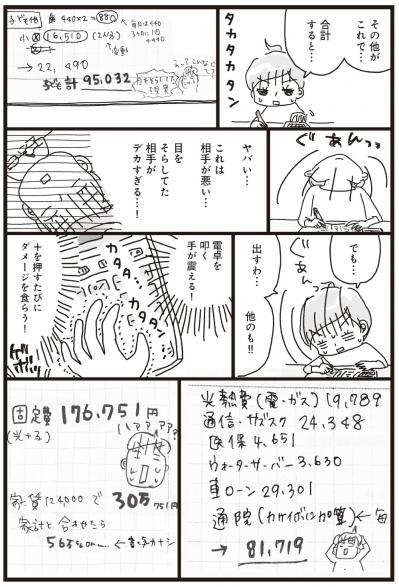 その他が
これで…
合計
すると…
タカタカタン
子ども他 歯 440×2=880
小 16,510 (2人分)
→22,490
計 95,032
ぐあんっっ
ヤバい…
これは
相手が悪い…
目を
そらしてた
相手が
デカすぎる…！
でも…
ぐあんっ
出すわ…
他のも!!
電卓を
叩く
手が震える！
カタ…
カタタン
＋を押すたびに
ダメージを食らう！
光熱費(電・ガス) 19,789
通信・サブスク 24,348
医保 4,651
ウォーターサーバー 3,630
車ローン 29,301
通院
→ 81,719
固定費 176,751円
ハァ???
家賃124,000で 30万751円
家計と合わせたら